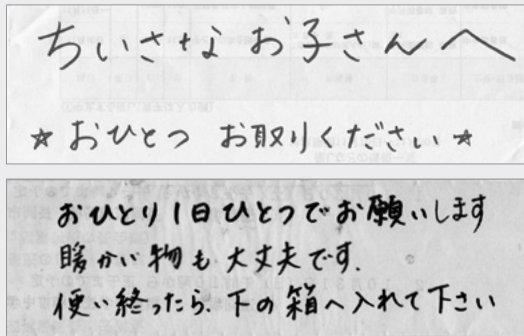 ちいさな お子さんへ
☆ おひとつ お取りください ☆
おひとり1日ひとつでお願いします
暖かい物も大丈夫です.
使い終ったら、下の箱へ入れて下さい